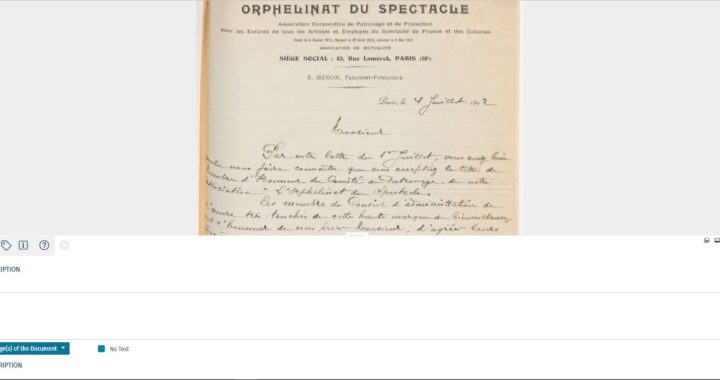 ORPHELINAT DU SPECTACLE
Association Corporative de Patronage et de Protection
pour les Enfants de tous les Artistes et Employés du Spectacle de France et des Colonies
ASSOCIATION DE MUTUALITÉ
SIÈGE SOCIAL : 83, Rue Lamarck, PARIS (18e)
E. HÉNON, Président-Fondateur
Paris le 4 Juillet 1912
Monsieur
Par votre lettre du 1er Juillet, vous avez bien
voulu nous faire connaître que vous acceptez le titre de
Membre d'Honneur du Comité de Patronage de notre
association "L'Orphelinat du Spectacle.
Les membres du Conseil d'administration de
l'œuvre très touchés de cette haute marque de bienveillance,
ont l'honneur de vous prier Monsieur, d'agréer leurs
IPTION
ge(s) of the Document
No Text
RIPTION